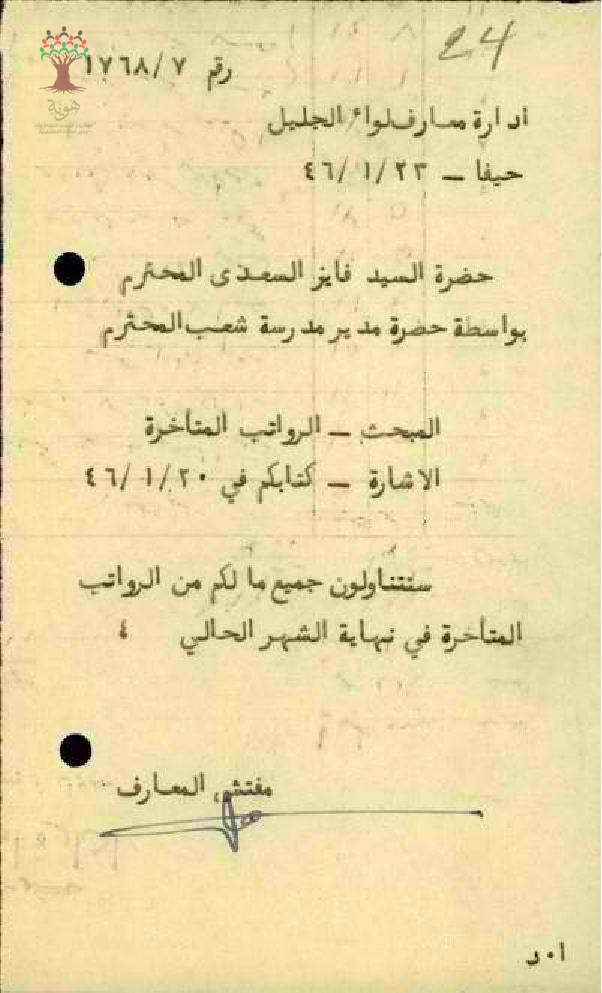 24
رقم ١٧٦٨/٧
هوية
ادارة معارف لواء الجليل
حيفا ـ ٤٦/١/٢٣
حضرة السيد فايز السعدى المحترم
بواسطة حضرة مدير مدرسة شعب المحترم
المبحث ـ الرواتب المتأخرة
الاشارة ـ كتابكم في ٤٦/١/٢٠
ستتناولون جميع ما لكم من الرواتب
المتأخرة في نهاية الشهر الحالي ٤
مفتش المعارف
ا٠ر